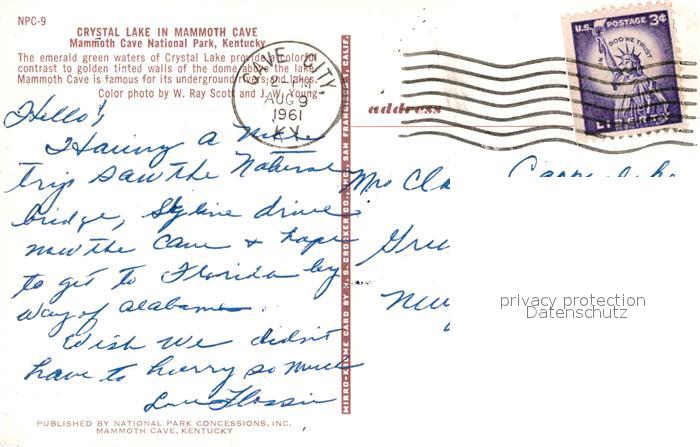 NPC-9
CRYSTAL LAKE IN MAMMOTH CAVE
Mammoth Cave National Park, Kentucky
The emerald green waters of Crystal Lake provide a colorful
contrast to golden tinted walls of the dome above the lake.
Mammoth Cave is famous for its underground rivers and lakes.
Color photo by W. Ray Scott and J. W. Young
Hello!
Having a nice
trip Saw the Natural
bridge, Skyline drive
now the Cave & hope
to get to Florida by
way of Alabama.
Wish we didn't
have to hurry so much
Love Flossie
PUBLISHED BY NATIONAL PARK CONCESSIONS, INC.
MAMMOTH CAVE, KENTUCKY
MIRRO-KROME CARD BY H. S. CROCKER CO., INC. SAN FRANCISCO 1, CALIF.
CAVE CITY,
2 - PM
AUG 9
1961
KY.
U.S. POSTAGE 3¢
IN GOD WE TRUST
LIBERTY
address
Mrs
privacy protection
Datenschutz